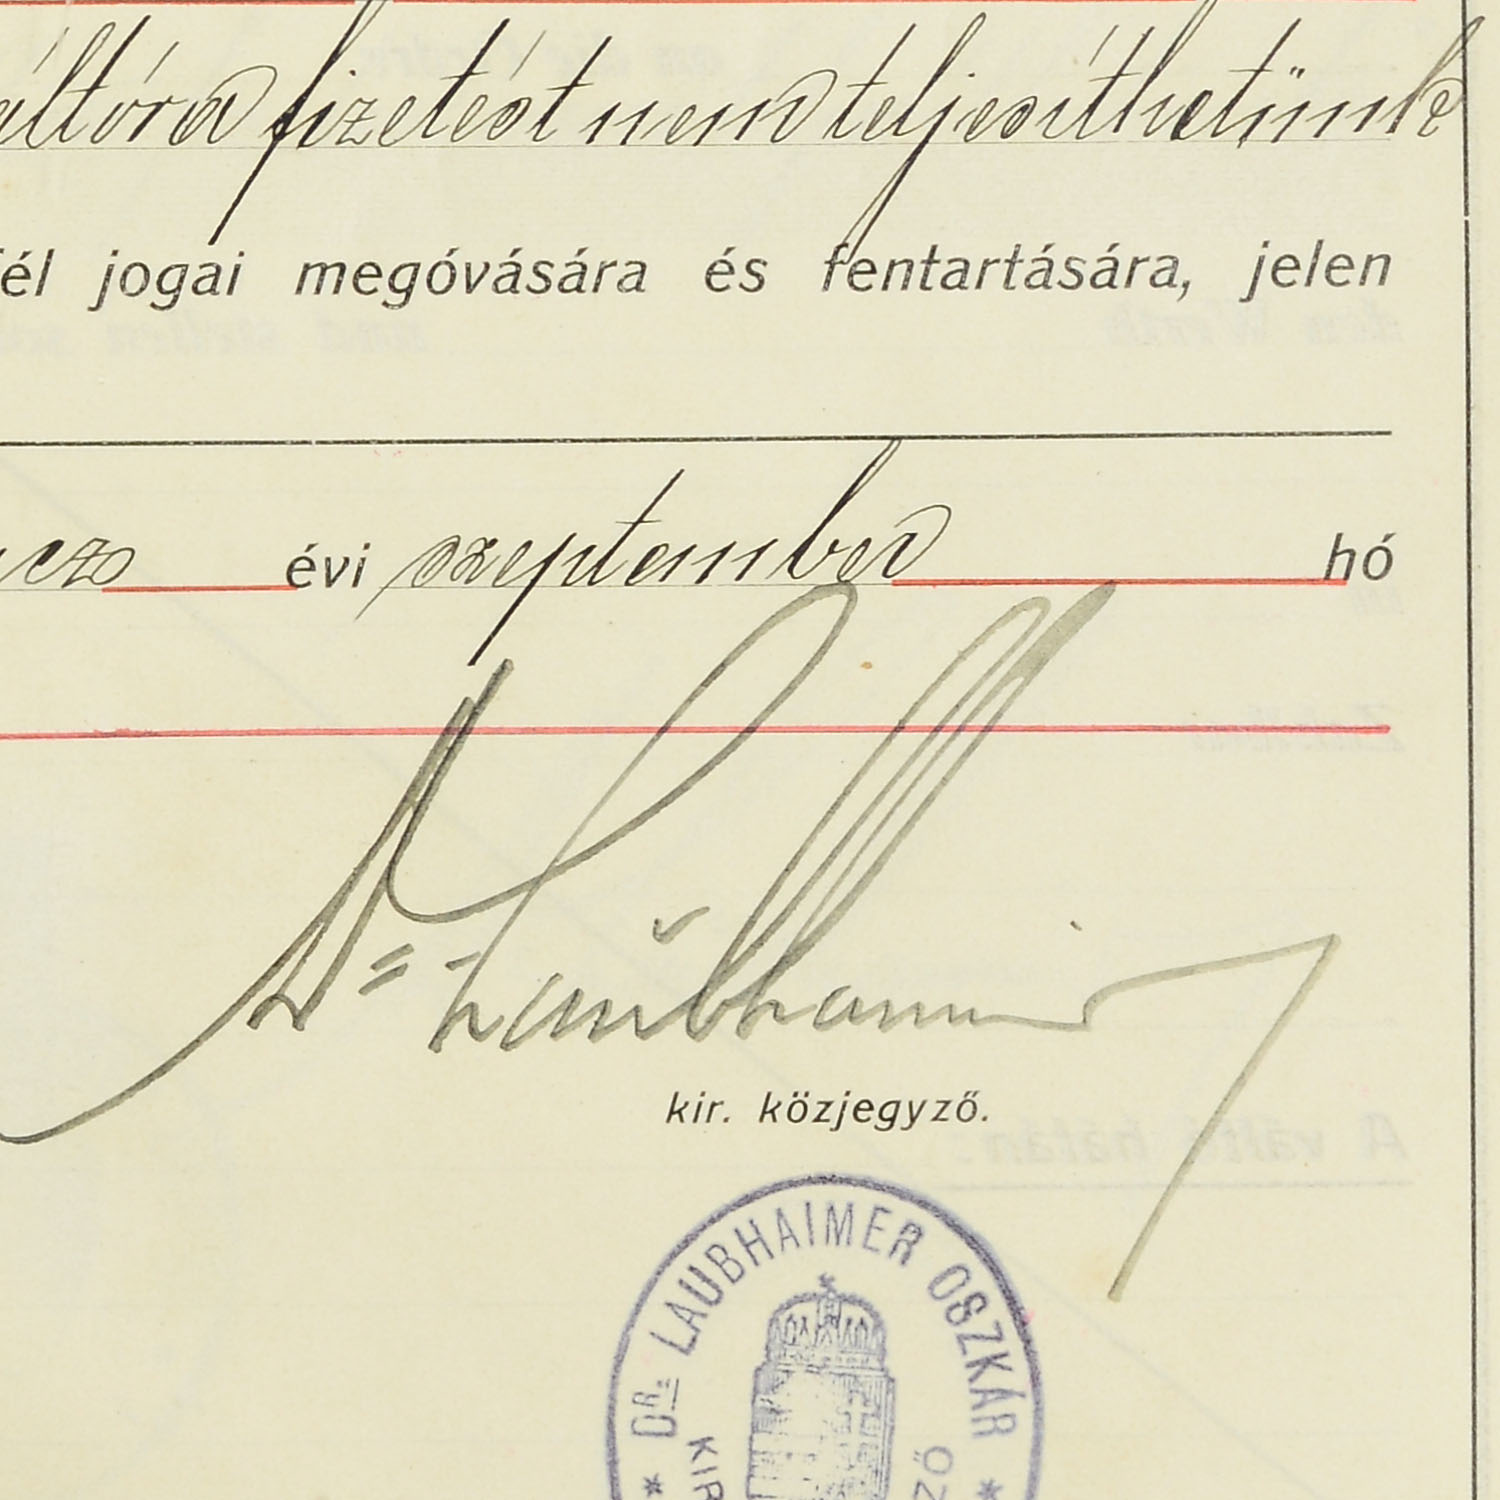 váltóra fizetést nem teljesíthetünk
fél jogai megóvására és fentartására, jelen
évi szeptember hó
Dr. Laubhaimer
kir. közjegyző.
* DR. LAUBHAIMER OSZKÁR *